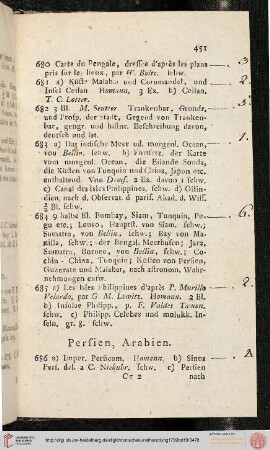 451
680 Carte du Bengale, dressée d'après les plans
pris sur le lieux, par W. Bolts. schw.
681 a) Küste Malabar und Coromandel, und
Insel Ceilan Homann. 3 Ex. b) Ceilan,
T. C. Lotter.
682 3 Bl. M. Seutter Trankenbar, Grundr.
und Prosp. der Stadt, Gegend von Tranken-
bar, geogr. und histor. Beschreibung davon,
deutsch und lat.
683 a) Das indische Meer od. morgenl. Ocean,
von Bellin, schw. b) Fortsetz. der Karte
vom morgenl. Ocean, die Eilande Sonda,
die Küsten von Tunquin und China, Japon etc.
enthaltend. Von Demf. 2 Ex. davon 1 schw.
c) Canal des Isles Philippines, schw. d) Ostin-
dien, nach d. Observat. d. paris. Akad. d. Wiss.
½ Bl. schw.
684 9 halbe Bl. Bombay, Siam, Tunquin, Pe-
gu etc.; Louvo, Hauptst. von Siam, schw.;
Sumatra, von Bellin, schw.; Bay von Ma-
nilla, schw.; der Bengal. Meerbusen; Java,
Sumatra, Borneo, von Bellin, schw.; Co-
chin-China, Tunquin; Küsten von Persien,
Guzerate und Malabar, nach astronom. Wahr-
nehmungen entw.
685 a) Les Isles Philippines d'après P. Murillo
Velarde, par G. M. Lowitz. Homann. 2 Bl.
b) Insulae Philipp., p. F. Valdes Tamon,
schw. c) Philipp. Celebes und molukk. In-
seln, gr. 8. schw.
Persien, Arabien.
686 a) Imper. Persicum, Homann. b) Sinus
Persi. del. a C. Niebuhr, schw. c) Persien
Cc 2 nach
3
1
6
2
A